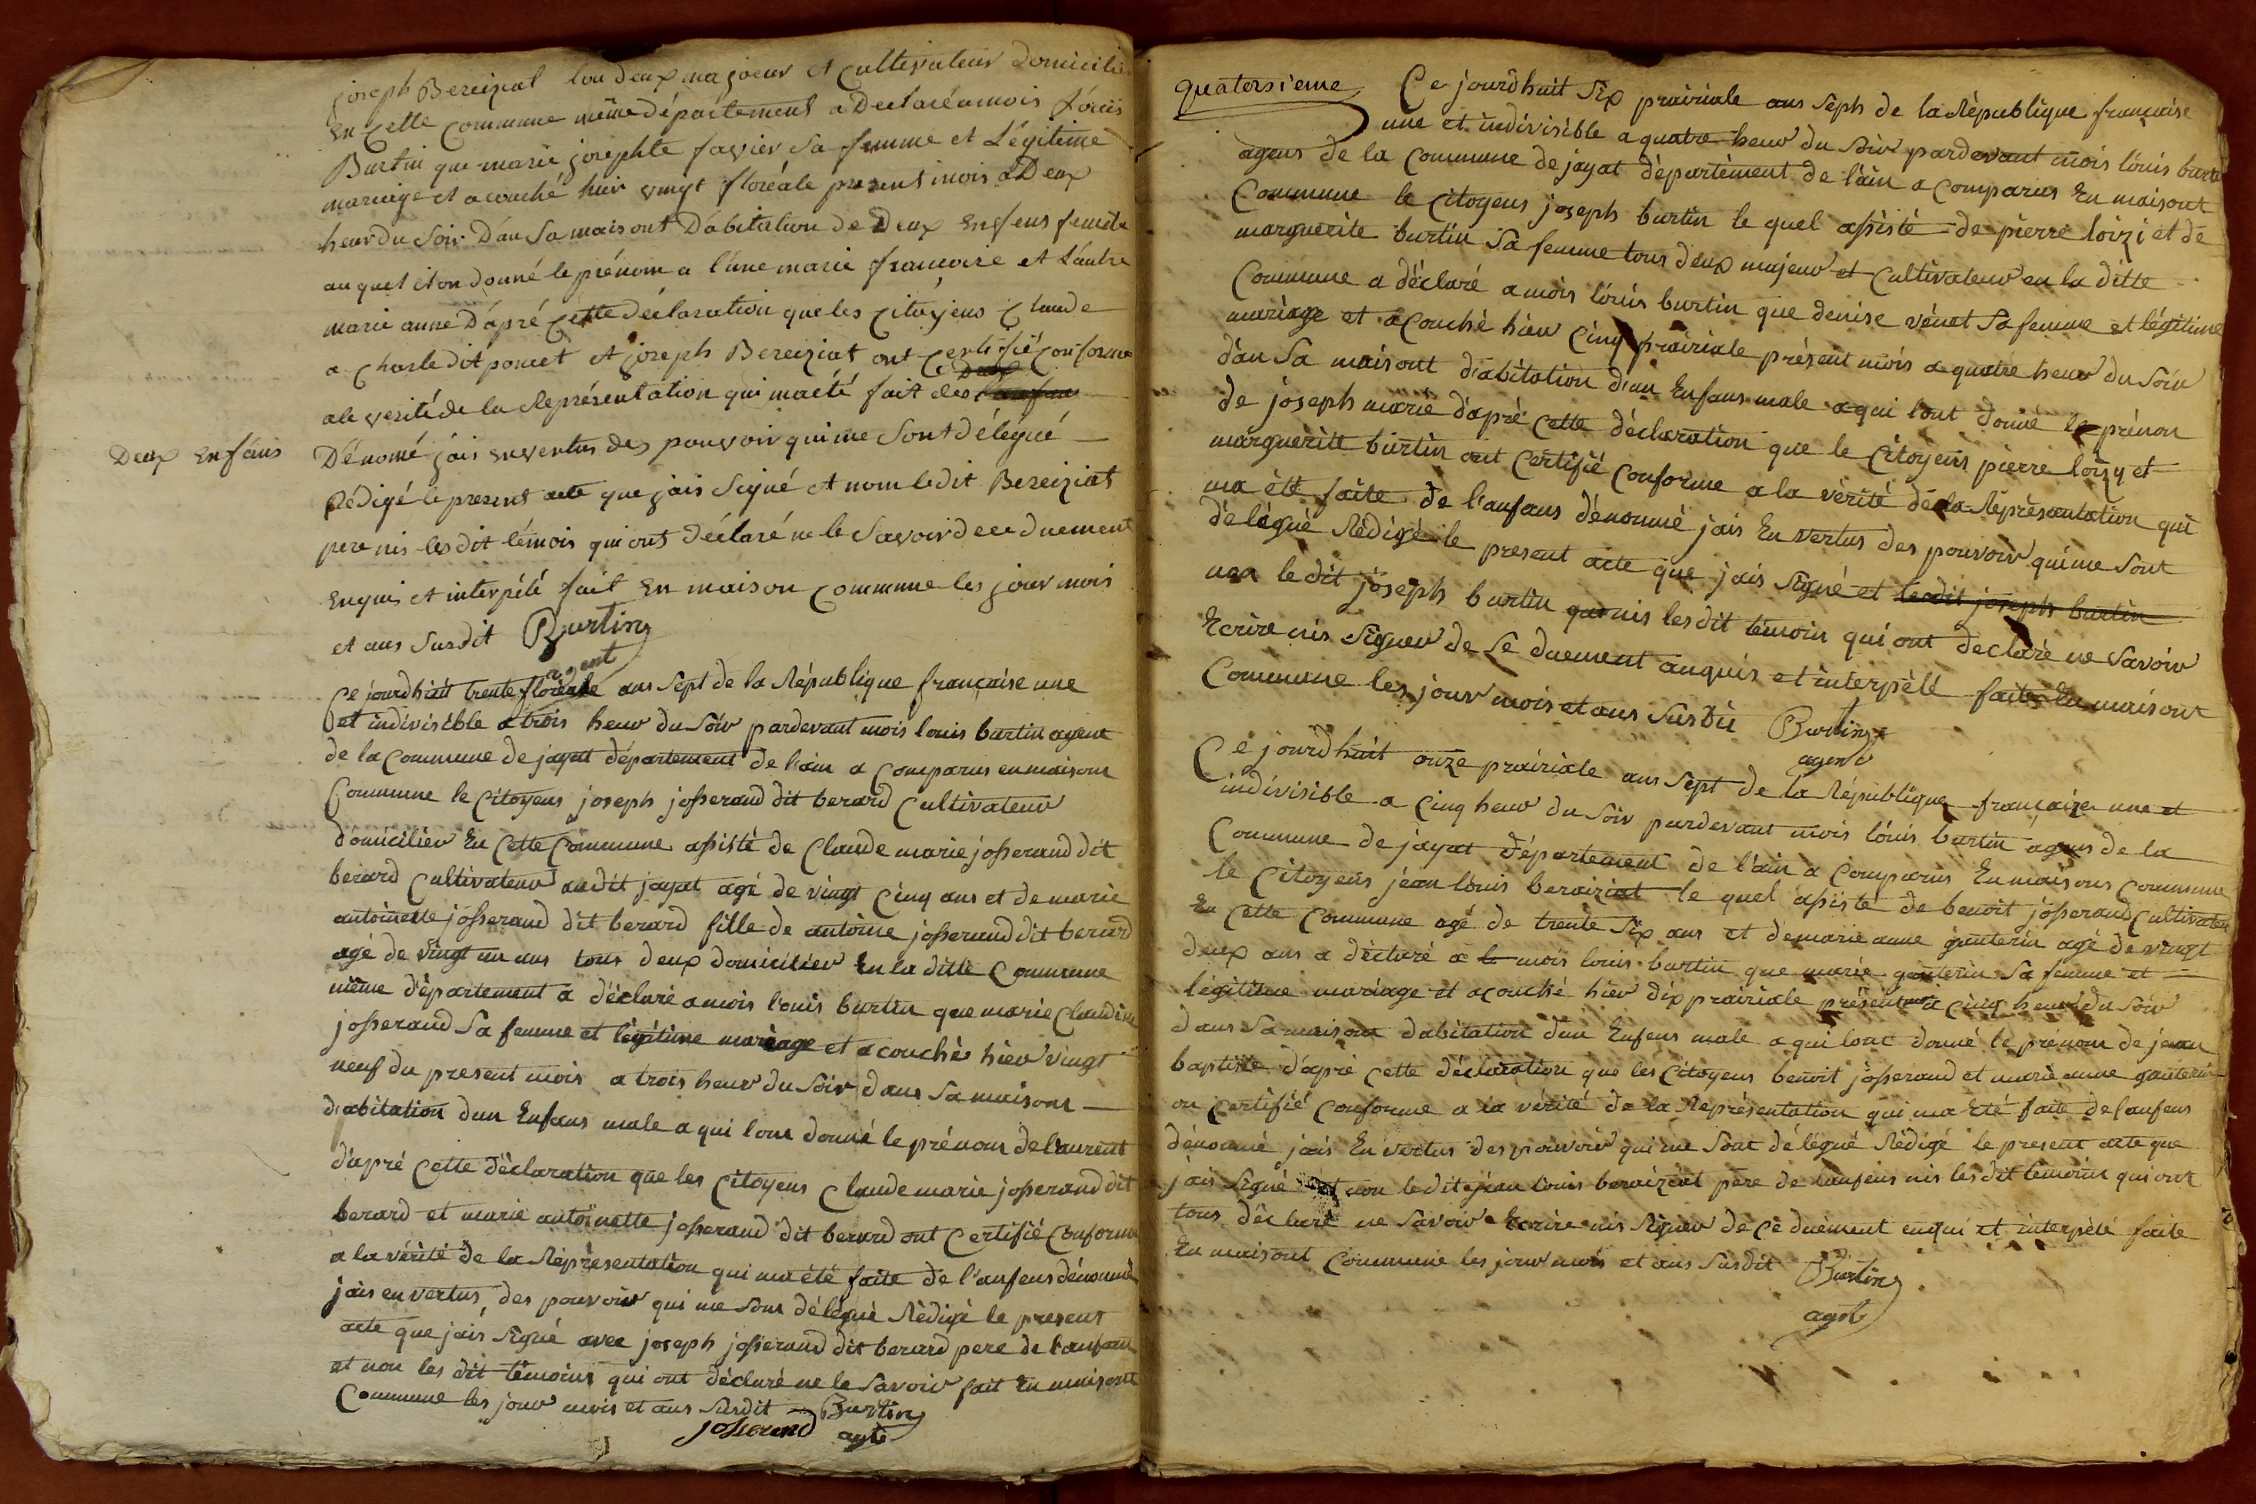 joseph Bereiziat tou deux majeur et Cultivateur Domicilié
en Cette Commune même département a Declaré a mois Lóuis
Burtin que marie josephte favier Sa femme et Légitime
mariage et a couché hier vingt floréale present mois a Deux
heur du Soir Dan Sa maisont Dábitation de Deux enfens femele
au quel il on donné le prénom a lúne marie francoise et Láutre
marie anne Dápré Cette déclaration que les Citoyens Claude
a Charle dit poncet et joseph Bereiziat ont Certifié Conforme
a le verité de la Représentation qui ma été fait des Deux l'anfan
Deux enfáns
Dénomé jais en vertus des pouvoir qui me Sont délégué
Rédigé le present acte que jais Signé et nom le dit Bereiziat
pere nis les dit témois qui ont déclaré ne le Savoir de ce duement
enquis et interpélé fait en maison Commune les jour mois
et ans Susdit Burtin
agent
Ce jourdhuit trente floréale ans Sept de la République française une
et indivisible a trois heur du Soir pardevant mois louis burtin agent
de la Commune de jayat département de l'ain a Comparus en maisont
Commune le Citoyens joseph josserand dit berard Cultivateur
domicilier En Cette Commune assisté de Claude marie josserand dit
bérard Cultivateur audit jayat agé de vingt Cinq ans et de marie
antoinette josserand dit berard fille de antoine josserand dit berard
agé de vingt un ans tous deux domicilier En la ditte Commune
même département a déclaré a mois louis burtin que marie Claudine
josserand Sa femme et légitime mariage et acouché hier vingt
neuf du present mois a trois heur du Soir dans Sa maisont
dabitation dun Enfans male a qui lont donné le prénom de laurent
dápré Cette déclaration que les Citoyens Claude marie josserand dit
berard et marie antoinette josserand dit berard ont Certifié Conforme
a la vérité de la Réprésentation qui ma été faite de l'anfens dénommé
jais en vertus des pouvoir qui me Sont délégué Rédigé le present
acte que jais Signé avec joseph josserand dit berard pere de l'anfan
et non les dit témoins qui ont déclaré ne le Savoir fait En maisont
Commune les jour mois et ans Susdit Burtin
josserand agt
quatorsieme Ce jourdhuit Six prairiale ans Séph de la République française
une et indivisible a quatre heur du Soir pardevant mois lóuis burtin
agens de la Commune de jayat département de l'ain a Comparus En maisont
Commune le Citoyens joseph burtin le quel assisté de pierre loizi et de
marguerite burtin Sa femme tous deux majeur et Cultivateur en la ditte
Commune a déclaré a mois lóuis burtin que denise vénet Sa femme et légitime
mariage et acouché hier Cinq prairiale présent mois a quatre heur du Soir
dan Sa maisont d'abitation d'un Enfans male a qui lont donné le prénon
de joseph marie d'apré Cette déclaration que le Citoyens pierre loizy et
marguerite burtin ont Certifié Conforme a la vérité de la Réprésantation qui
ma été faite de l'anfans dénommé jais En vertus des pouvoir qui me Sont
délégué Rédigé le present acte que jais Signé et ledit joseph burtin
non le dit joseph burtin que nis les dit témoin qui ont déclaré ne Savoir
Ecrire nis Signer de Se duement anquis et interpélé faite En maisont
Commune les jour mois et ans Susdit Burtin
agent
Ce jourdhuit onze prairiale ans Sept de la République française une et
indivisible a Cinq heur du Soir pardevant mois lóuis burtin agens de la
Commune de jayat département de l'ain a Comparus En maisons Commune
le Citoyens jean lóuis beraiziat le quel assisté de benoit josserand Cultivateur
En Cette Commune agé de trente Six ans et de marie anne gauterin agé de vingt
deux ans a déclaré a le mois louis burtin que marie gauterin Sa femme et
légitime mariage et acouché hier dix prairiale présent mois a Cinq heur du Soir
dans Sa maisont dabitation dun Enfens male a qui lont donné le prénom de jean
baptiste d'apré Cette déclaration que les Citoyens benoit josserand et marie anne gauterin
on Certifié Conforme a la vérité de la Représentation qui ma été faite de lanfens
dénommé jais En vertus des pouvoir qui me Sont délégué Rédigé le present acte que
jais Signé et non le dit jean lóuis beraiziat pere de lanfens nis les dit temoins qui ont
tous déclaré ne Savoir Ecrire nis Signer de Ce duément enqui et interpélé faite
En maisont Commune les jour mois et ans Susdit Burtin
agt